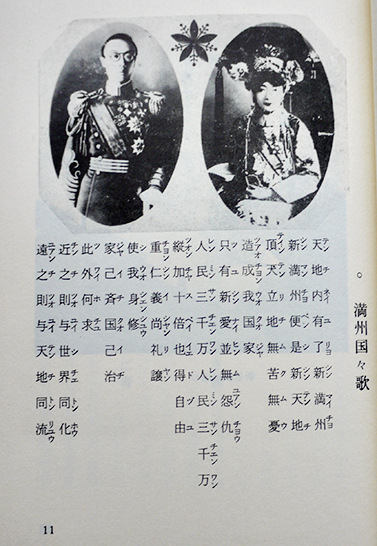 ○ 満州国々歌
天地内有了新満州
新満州便是新天地
頂天立地無苦無憂
造成我国家
只有新愛並無怨仇
人民三千万人民三千万
縦加十倍也得自由
重仁義尚礼譲
使我身修
家己斉国己治
此外何求
近之則与世界同化
遠之則与天地同流
11